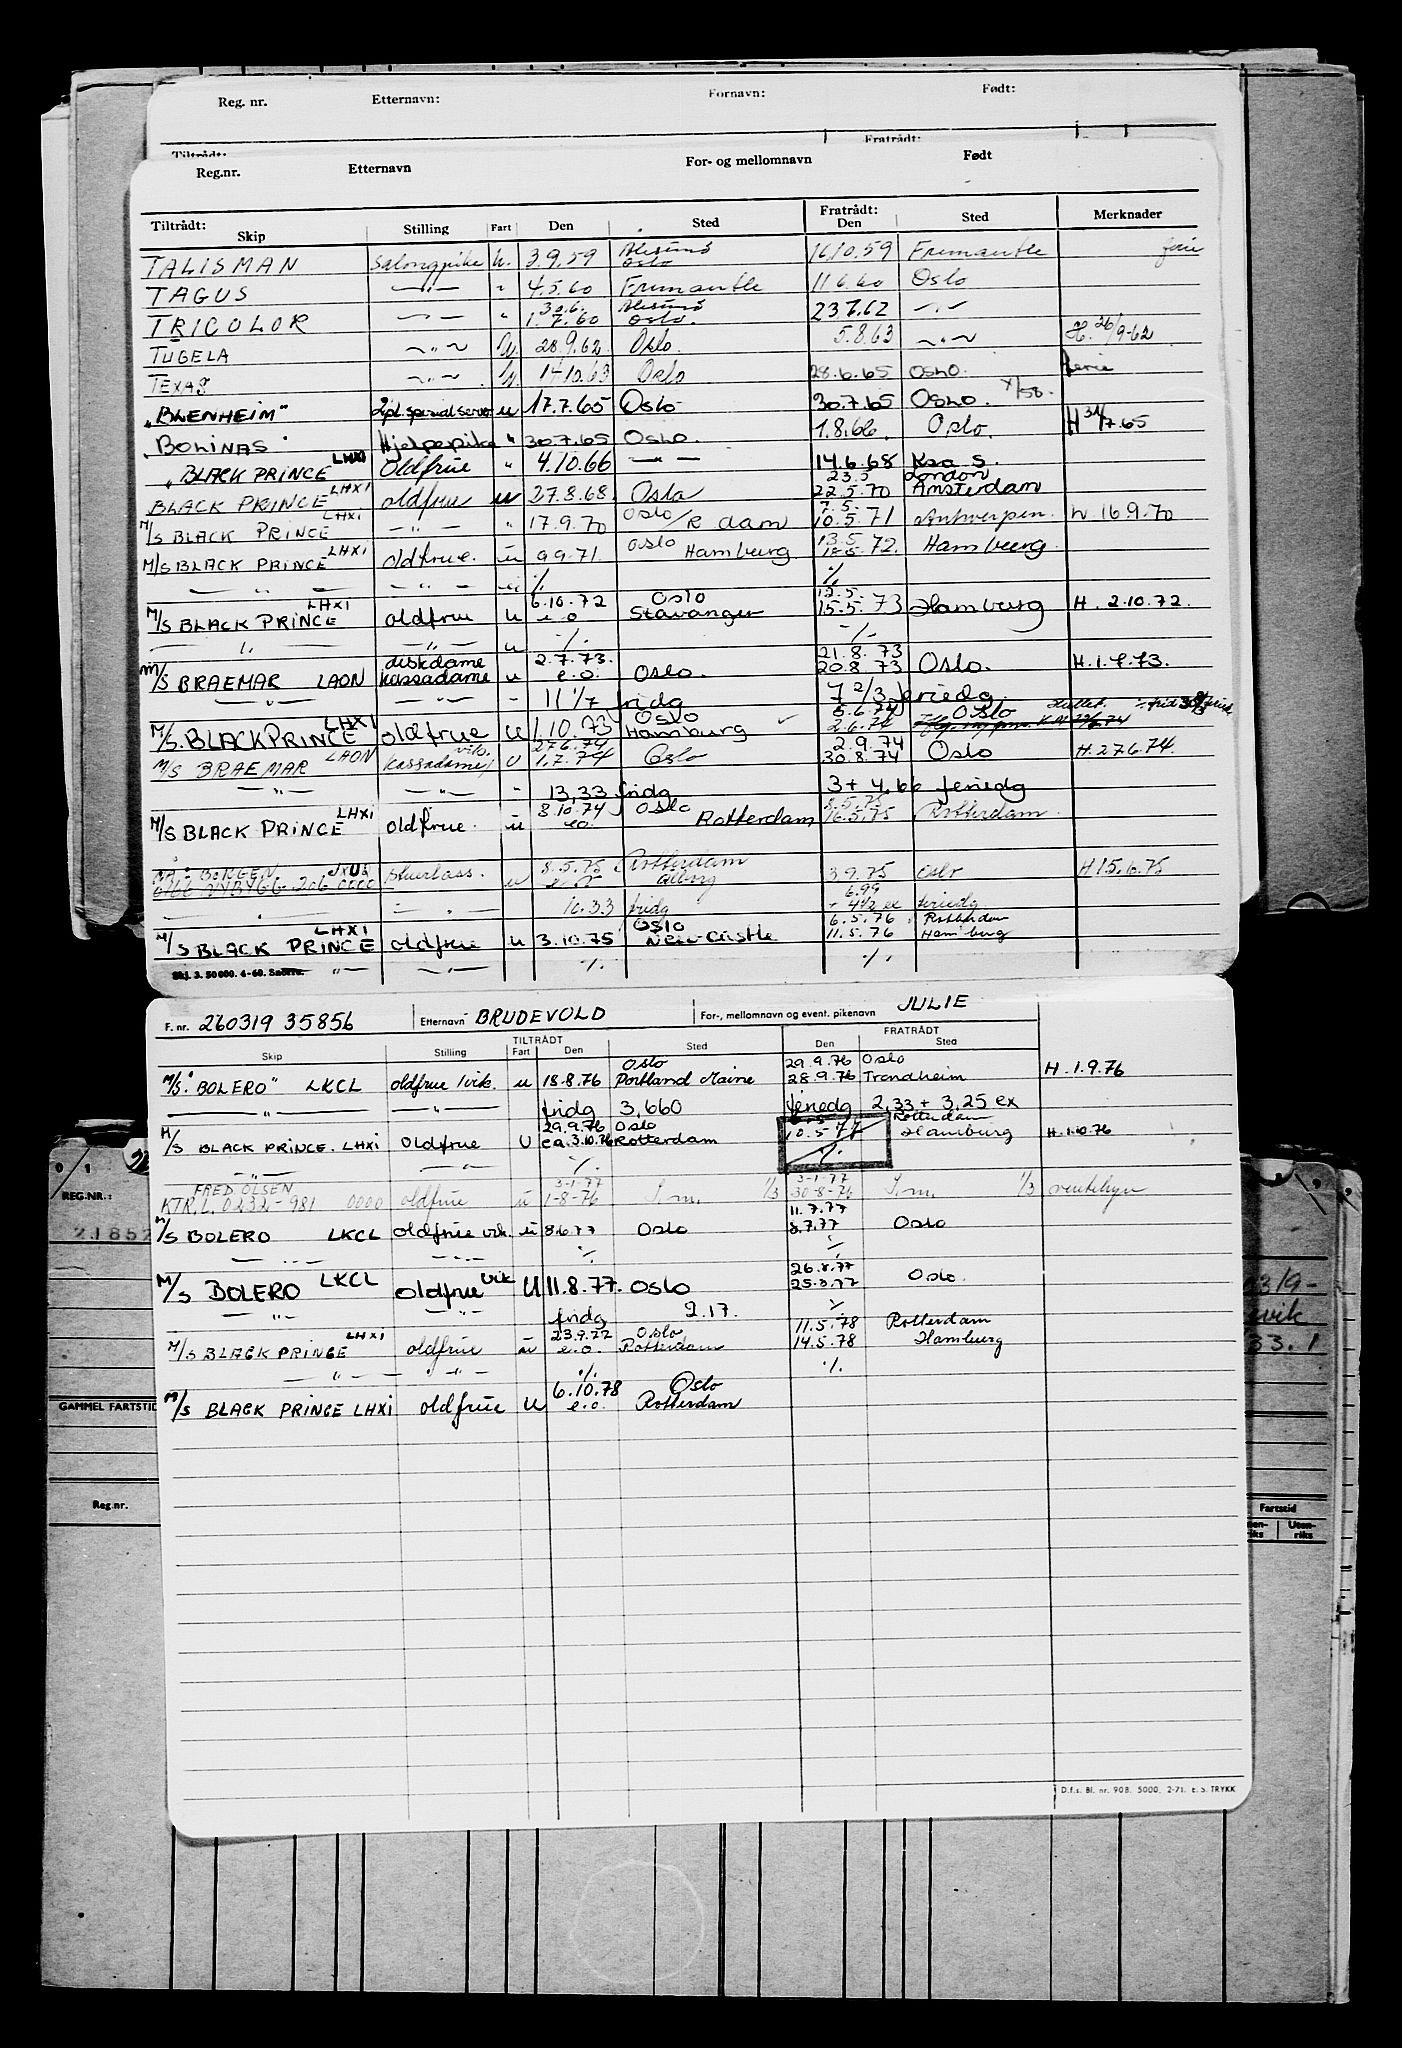 Reg. nr. Etternavn: Fornavn: Født:
Tiltrådt: Fratrådt:
Reg.nr. Etternavn For- og mellomnavn Født
Tiltrådt: Skip Stilling Fart Den Sted Fratrådt: Den Sted Merknader
TALISMAN Salongpike u. 3.9.59 Ålesund Oslo 16.10.59 Fremantle ferie
TAGUS —"— " 4.5.60 Fremantle 11.6.60 Oslo
TRICOLOR —"— " 30.6. 1.7.60 Ålesund Oslo. 23.7.62 —"—
TUGELA —"— u 28.9.62 Oslo. 5.8.63 —"— H. 26/9-62
TEXAS —"— u. 14.10.63 Oslo 28.6.65 OSLO. ferie
"BLENHEIM" spesialserv. u 17.7.65 Oslo 30.7.65 OSLO. x/58.
"BOLINAS" Hjelpepike " 30.7.65 OSLO. 1.8.66. Oslo. H 31/7.65
"BLACK PRINCE LHXI Oldfrue " 4.10.66 —"— 14.6.68 Kra S.
BLACK PRINCE LHXI oldfrue u 27.8.68. Oslo 23.5 22.5.70 London Amsterdam
M/S BLACK PRINCE LHXI —"— " 17.9.70 Oslo/R dam 7.5. 10.5.71 Antwerpen. h. 16.9.70
M/S BLACK PRINCE LHXI oldfrue. u 9.9.71 Oslo Hamburg. 13.5 72. Hamburg.
—"— —"— u ·/. ·/.
M/S BLACK PRINCE LHXI oldfrue u 6.10.72 e.o Oslo Stavanger 12.5. 15.5.73 Hamburg H. 2.10.72.
" —"— u ·/. ·/.
M/S BRAEMAR LAON diskdame kassadame u 2.7.73. e.o. Oslo. 21.8.73 20.8.73 Oslo. H.1.7.73.
—"— —"— - 11 1/7 fridg 7 2/3 feriedg.
M/S. BLACK PRINCE LHXI oldfrue u 1.10.73 Oslo Hamburg 5.6.74 2.6.74 Oslo
M/S BRAEMAR LAON kassadame/ vik. U 27.6.74 1.7.74 Oslo 2.9.74 30.8.74 Oslo H.27.6.74.
—"— —"— - 13,33 fridg 3 + 4,66 feriedg
M/S BLACK PRINCE LHXI oldfrue. u 8.10.74 eo. Oslo Rotterdam 8.5.75 16.5.75 Rotterdam.
BORGEN JXUQ NYBYGG. 206 0000 u 8.5.75 Rotterdam Ålborg 3.9.75 Oslo H15.6.75
" —"— 16.33 fridg 6.99 + 4 1/2 ex feriedg
M/S BLACK PRINCE LHXI oldfrue u 3.10.75 Oslo New-Castle 6.5.76 11.5.76 Rotterdam Hamburg
Skj. 3. 50 000. 4-60. —"— —"— ·/. ·/.
F. nr. 260319 35856 Etternavn BRUDEVOLD For-, mellomnavn og event. pikenavn JULIE
Skip Stilling TILTRÅDT Fart Den Sted FRATRÅDT Den Sted
M/S. "BOLERO" LKCL oldfrue /vik. u 18.8.76 Oslo Portland Maine 29.9.76 28.9.76 Oslo Trondheim H.1.9.76
—"— —"— fridg 3,660 feriedg 2,33 + 3,25 ex
M/S BLACK PRINCE. LHXI oldfrue U 29.9.76 ca.3.10.76 Oslo Rotterdam 10.5.77 Rotterdam Hamburg H.1.10.76
—"— —"— ·/. ·/.
FRED OLSEN KTR.L. 0232-981 0000 oldfrue u 3-1-77 1-8-76 I.m. 1/3 3-1-77 30-8-76 I.m. 1/3 ventehyre
M/S BOLERO LKCL oldfrue vik. u 8.6.77 Oslo 11.7.77 8.7.77 Oslo
—"— —"— ·/. ·/.
M/S BOLERO LKCL oldfrue vik U 11.8.77. Oslo 26.8.77 25.8.77 Oslo.
—"— —"— fridg 2.17. ·/.
M/S BLACK PRINCE LHXI oldfrue u 23.9.77 e.o. Oslo Rotterdam 11.5.78 14.5.78 Rotterdam Hamburg
—"— —"— ·/. ·/.
M/S BLACK PRINCE LHXI oldfrue u 6.10.78 e.o. Oslo Rotterdam
D.f.s. Bl. nr. 908. 5000. 2-71. E.S. TRYKK
0/1
REG.NR.:
GAMMEL FARTSTID
Reg.nr.
33.1
Fartstid
Uten-riks